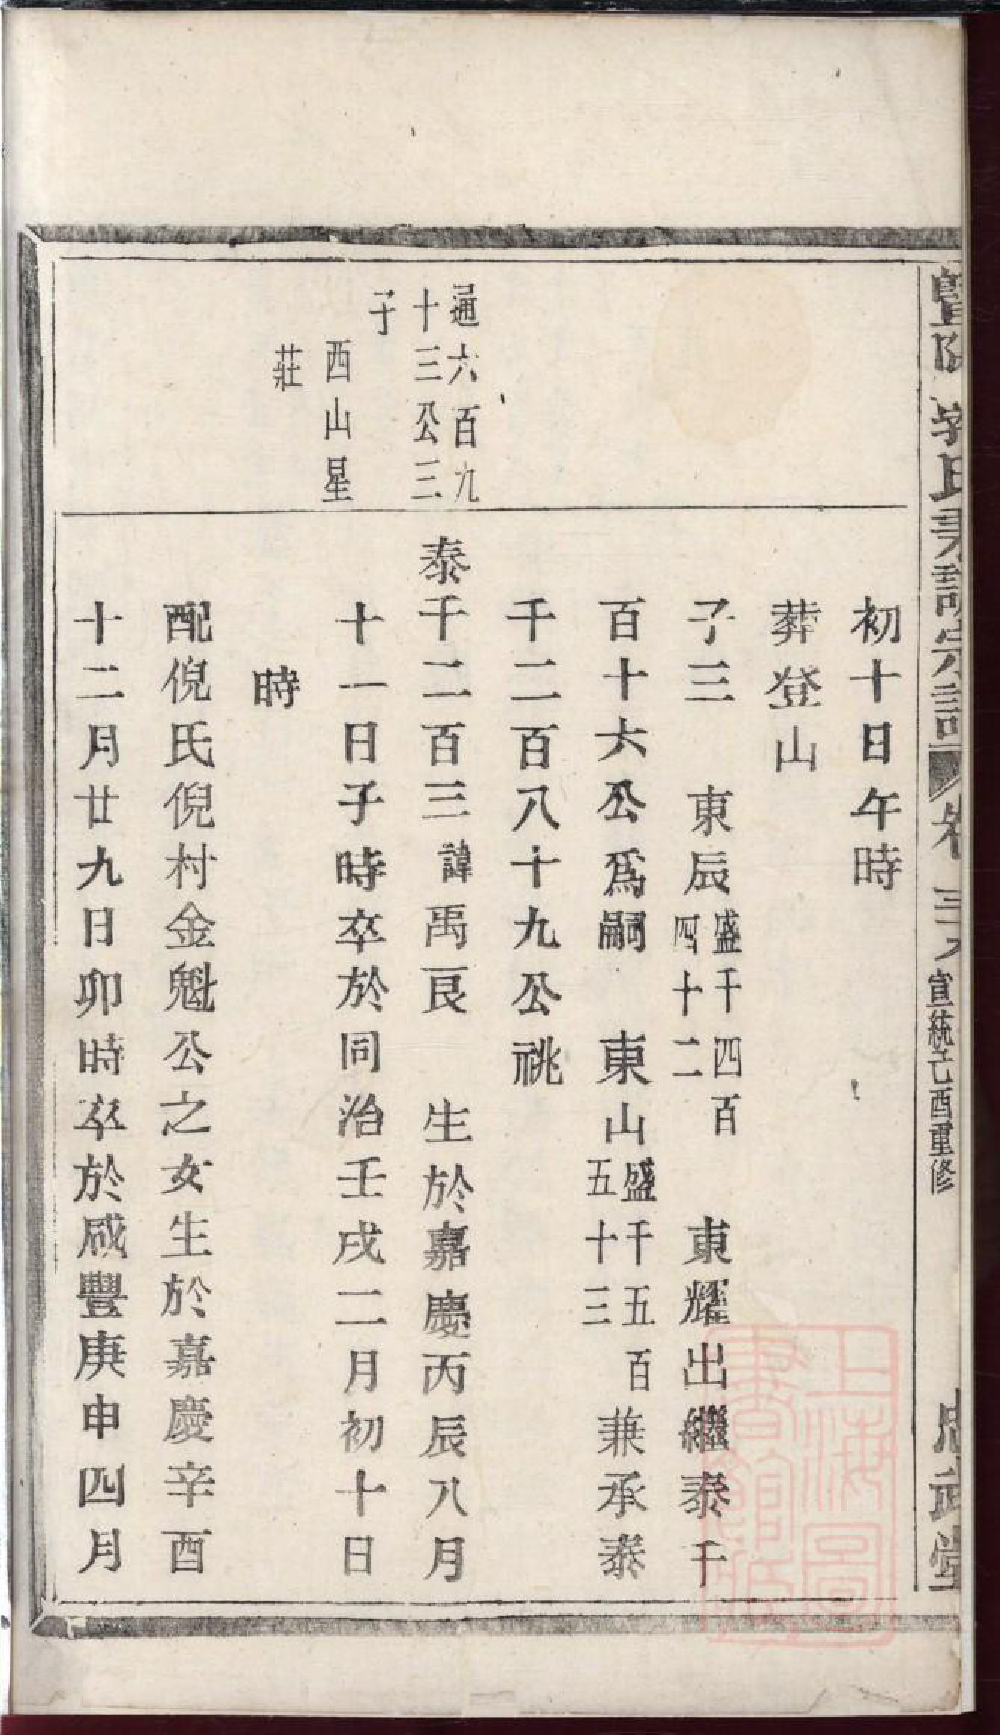 初十日午時
葬登山
子三　東辰盛千四百四十二　東耀出繼泰千
百十六公爲嗣　東山盛千五百五十三兼承泰
千二百八十九公祧
通六百九
十三公三
子
西山星
莊
泰千二百三諱禹艮　生於嘉慶丙辰八月
十一日子時卒於同治壬戌二月初十日
時
配倪氏倪村金魁公之女生於嘉慶辛酉
十二月廿九日卯時卒於咸豐庚申四月
氏
宗譜
宣統己酉重修
堂
上海圖
書館藏